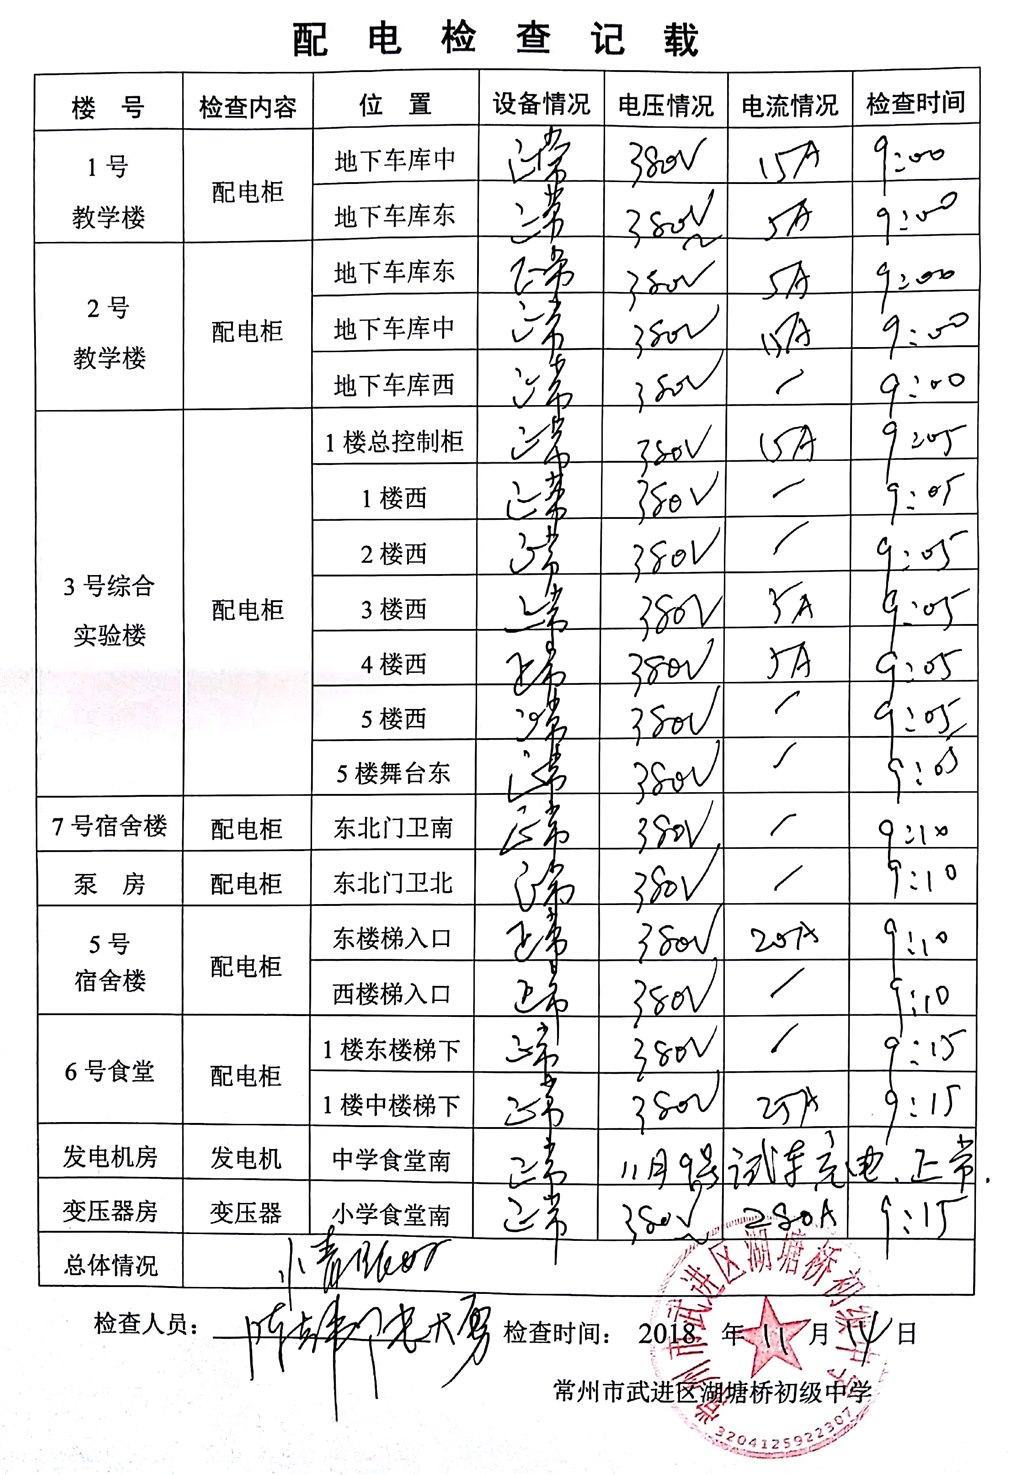 配电检查记载
楼 号 检查内容 位 置 设备情况 电压情况 电流情况 检查时间
1号
教学楼 配电柜 地下车库中 正常 380V 15A 9:00
地下车库东 正常 380V 5A 9:00
2号
教学楼 配电柜 地下车库东 正常 380V 5A 9:00
地下车库中 正常 380V 15A 9:00
地下车库西 正常 380V / 9:00
3号综合
实验楼 配电柜 1楼总控制柜 正常 380V 15A 9:05
1楼西 正常 380V / 9:05
2楼西 正常 380V / 9:05
3楼西 正常 380V 5A 9:05
4楼西 正常 380V 5A 9:05
5楼西 正常 380V / 9:05
5楼舞台东 正常 380V / 9:05
7号宿舍楼 配电柜 东北门卫南 正常 380V / 9:10
泵 房 配电柜 东北门卫北 正常 380V / 9:10
5号
宿舍楼 配电柜 东楼梯入口 正常 380V 20A 9:10
西楼梯入口 正常 380V / 9:10
6号食堂 配电柜 1楼东楼梯下 正常 380V / 9:15
1楼中楼梯下 正常 380V 25A 9:15
发电机房 发电机 中学食堂南 正常 11月9号试车充电.正常.
变压器房 变压器 小学食堂南 正常 380V 280A 9:15
总体情况
检查人员: 检查时间: 2018 年 11 月 14 日
常州市武进区湖塘桥初级中学
常州市武进区湖塘桥初级中学
3204125922307